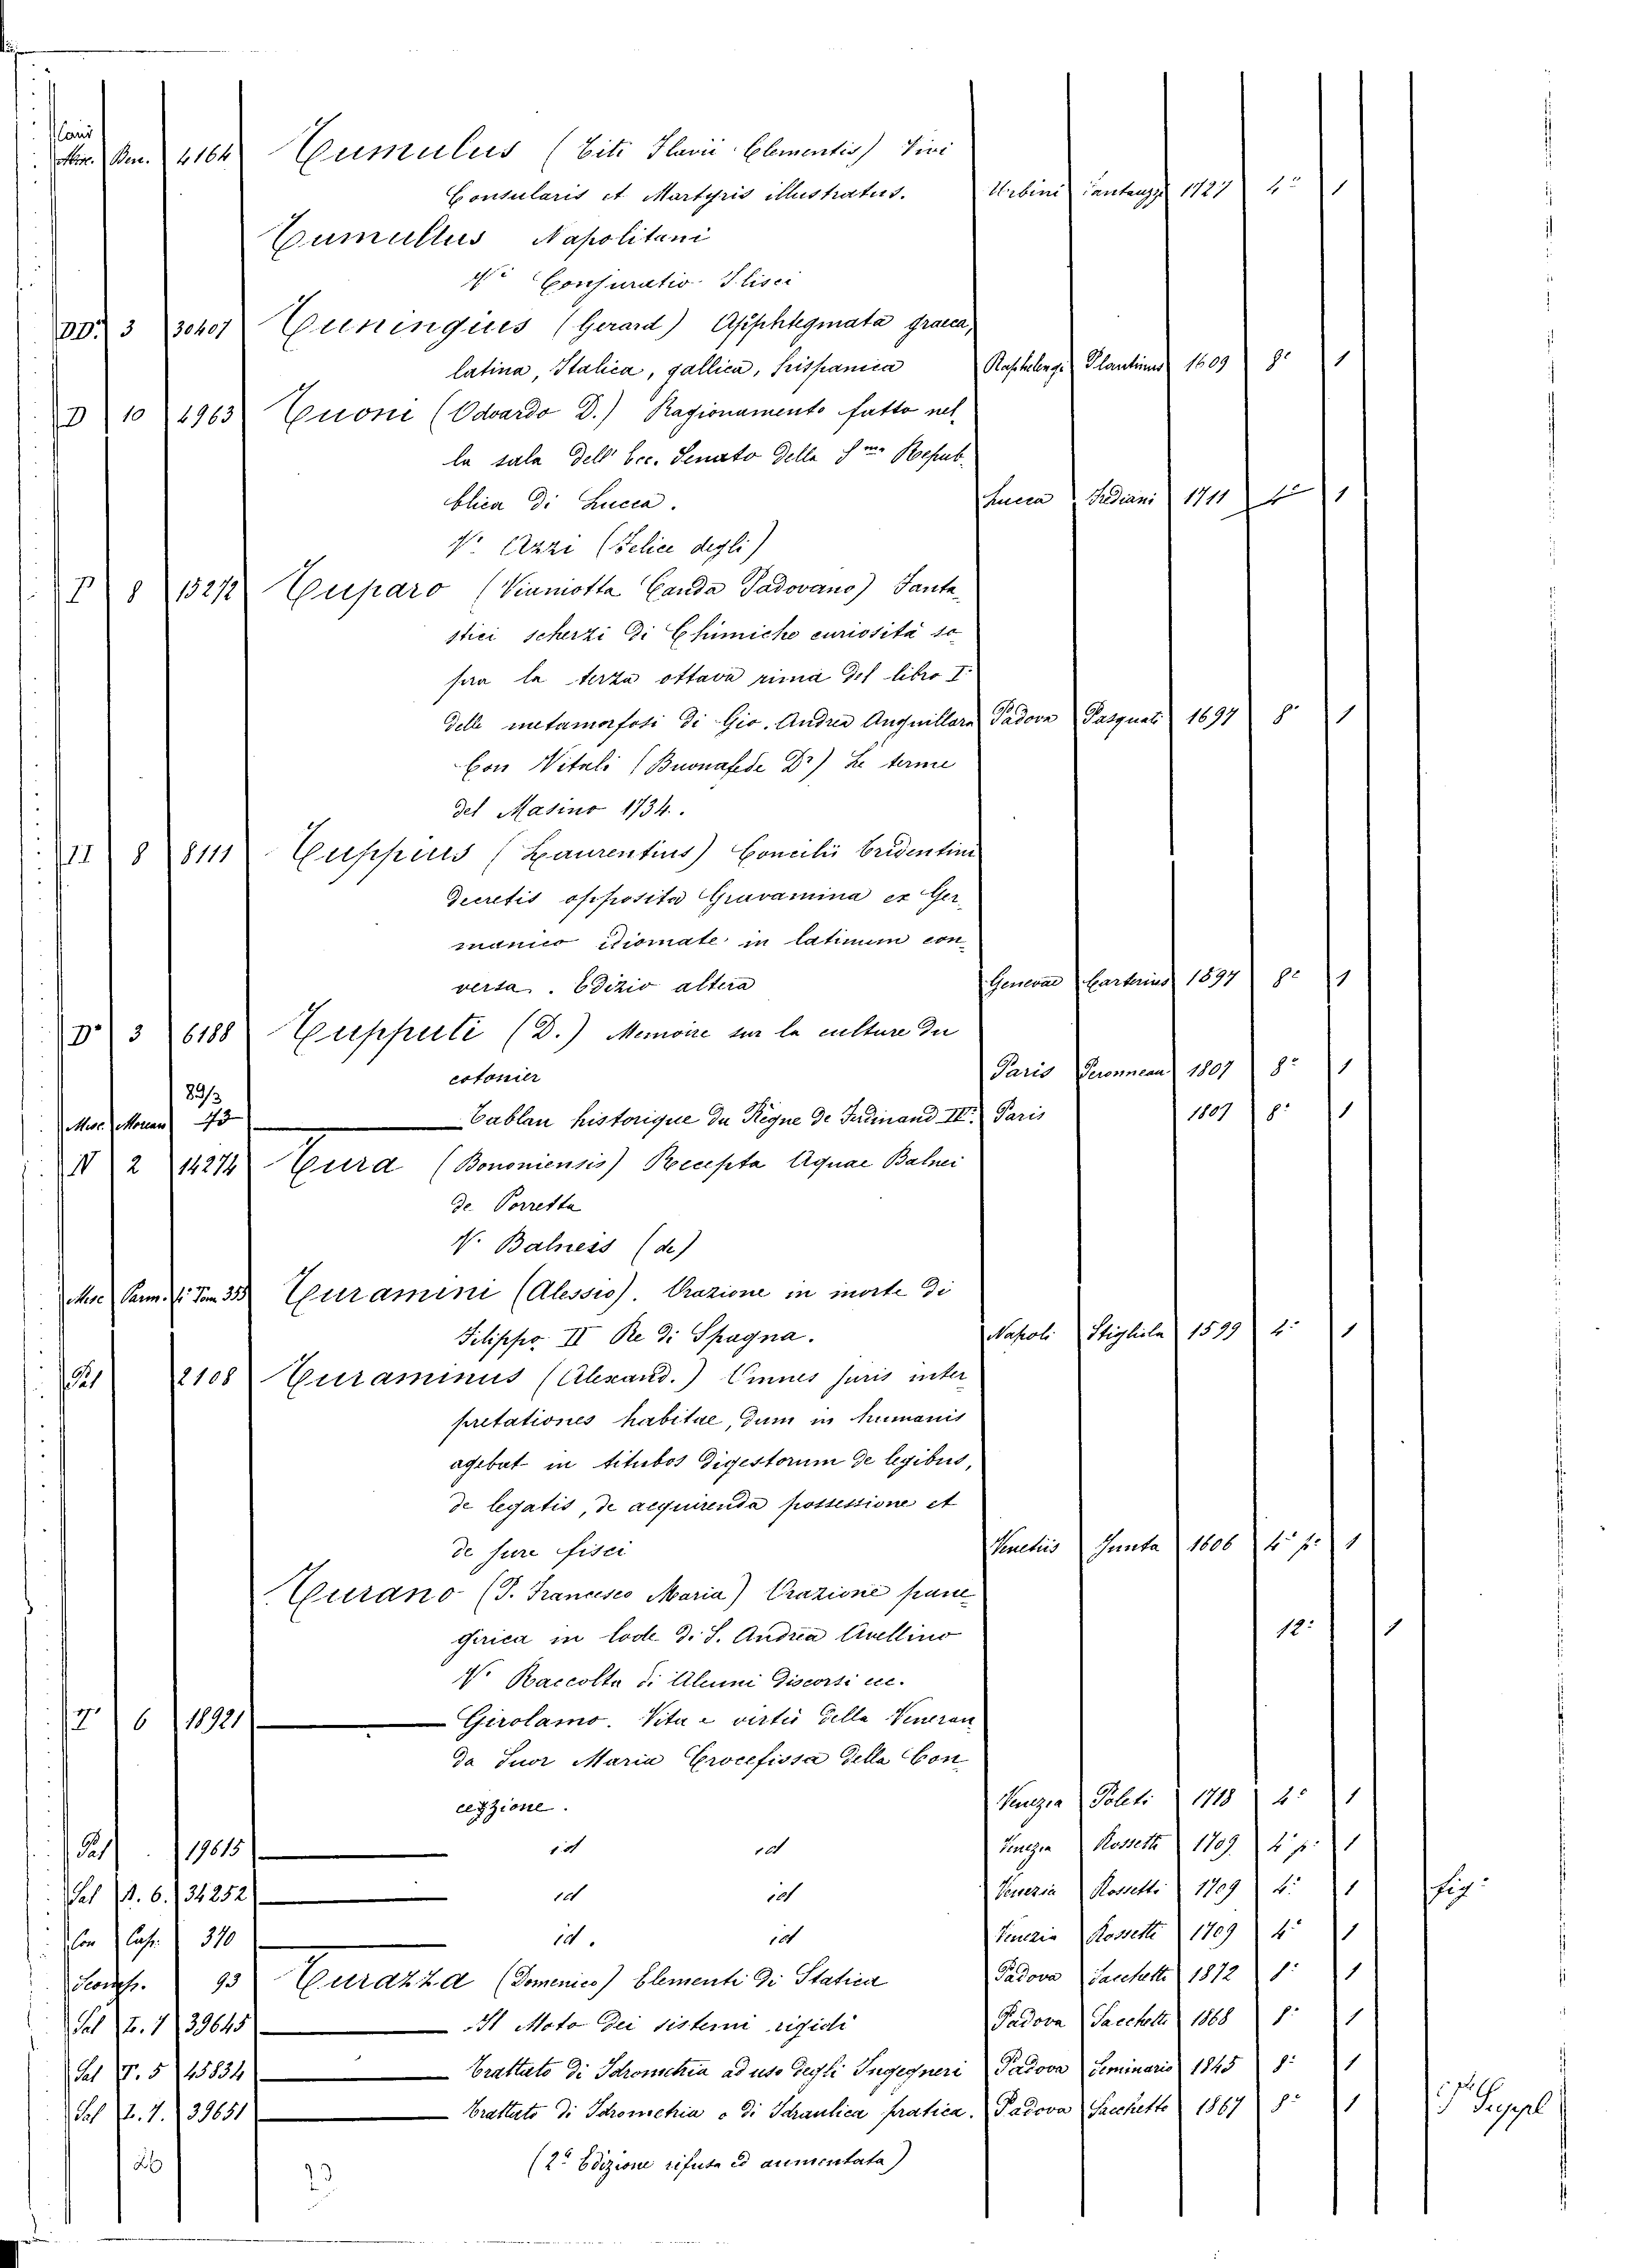 Misc. Ben. 4164 Tumulus (Titi Flavii Clementis) Viri
Consularis et Martyris illustratus. Urbini Fantauzzi 1727 4º 1
Tumultus Napolitani
Vi Conjuratio Flisci
DD. 3 30407 Tuningius (Gerard) Apophtegmata graeca,
latina, Italica, gallica, hispanica Raphelengi Plantinus 1609 8º 1
D 10 4963 Tuoni (Odoardo D.) Ragionamento fatto nel
la sala dell' Ecc. Senato della Sma Repub
blica di Lucca. Lucca Frediani 1711 4º 1
Vi Azzi (Felice degli)
T 8 13272 Tuparo (Viamotta Canda Padovano) Fanta
stici scherzi di Chimiche curiosità so
pra la terza ottava rima del libro I
delle metamorfosi di Gio. Andrea Anguillara Padova Pasquati 1697 8º 1
Con Vitali (Buonafede Dr) Le terme
del Masino 1734.
II 8 8111 Tuppius (Laurentius) Concilii Tridentini
Decretis opposita Gravamina ex Ger
manico idiomate in latinum con
versa. Edizio altera Genevae Carterius 1597 8º 1
D 3 6188 Tupputi (D.) Memoire sur la culture du
cotonier Paris Peronneau 1807 8º 1
89/3
Misc. Morean 73 Tablau historique du Règne de Ferdinand IV. Paris 1807 8º 1
N 2 14274 Tura (Bononiensis) Recepta Aquae Balnei
de Porretta
V. Balneis (de)
Misc Parm. fi Tom 353 Turamini (Alessio). Orazione in morte di
Filippo II Re di Spagna. Napoli Stigliola 1599 4º 1
Sal 2108 Turaminus (Alexand.) Omnes juris inter
pretationes habitae, dum in humanis
agebat in titubos Digestorum de legibus,
de legatis, de acquirenda possessione et
de jure fisci Venetiis Junta 1606 4º p. 1
Turano (P. Francesco Maria) Orazione pane
girica in lode di S. Andrea Avellino 12º 1
Vi Raccolta di Alcuni Discorsi ec.
T 6 18921 Girolamo. Vita e virtù della Veneran
da Suor Maria Crocefissa della Con
cezzione. Venezia Poleti 1718 4º 1
Sal 19615 id id Venezia Rossetti 1709 4º p. 1
Sal B. 6. 34252 id id Venezia Rossetti 1709 4º 1 fig.
Con Caps. 370 id. id Venezia Rossetti 1709 4º 1
Scomp. 93 Turazza (Domenico) Elementi di Statica Padova Sacchetti 1872 8º 1
Sal Z. 7 39645 Il Moto dei sistemi rigidi Padova Sacchetti 1868 8º 1
Sal T. 5 45834 Trattato di Idrometria ad uso degli Ingegneri Padova Seminario 1845 8º 1
Sal Z. 7. 39651 Trattato di Idrometria o di Idraulica pratica. Padova Sacchetto 1867 8º 1 Suppl
26 23 (2ª Edizione rifusa ed aumentata)